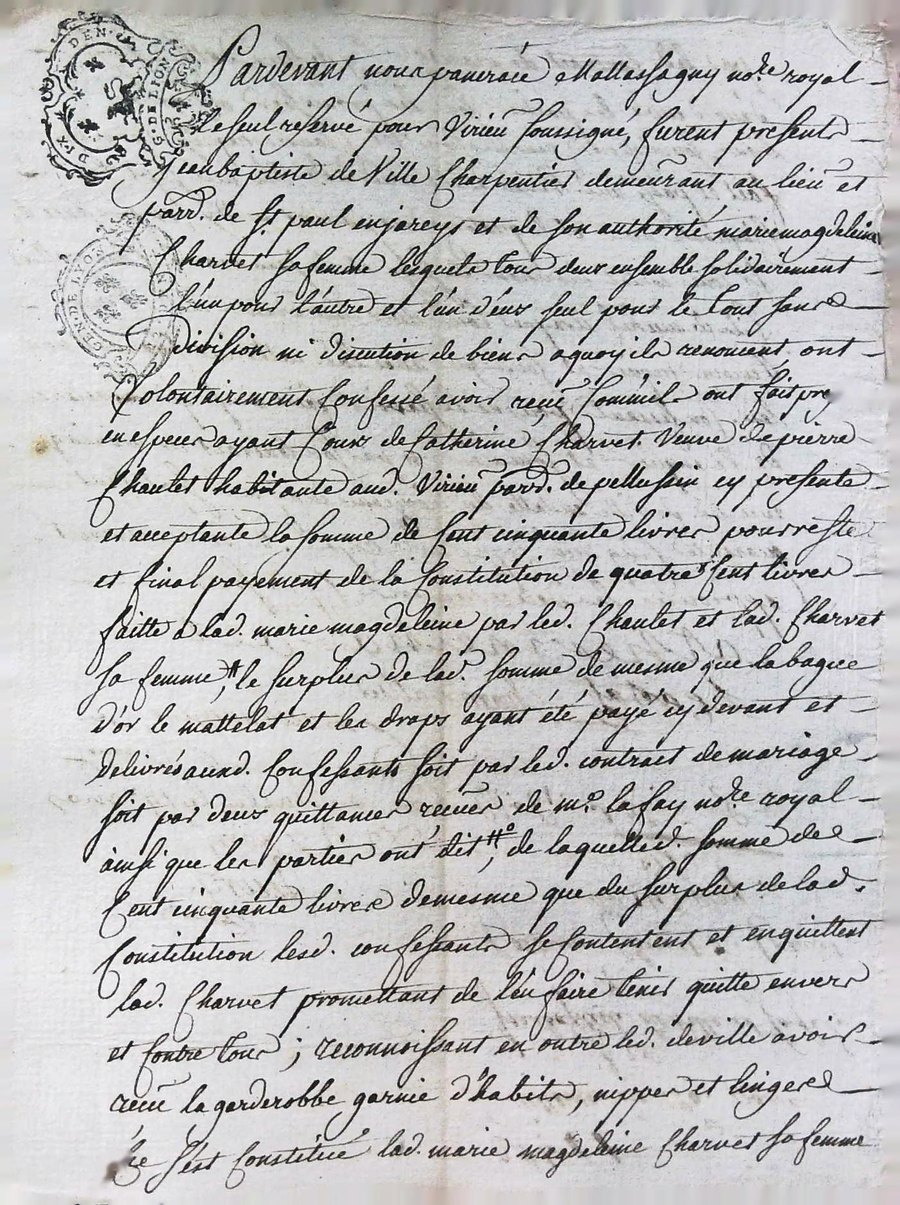 DIX DEN.
G. DE LION
GEN DE LYON
Pardevant nous pancrace Mallassagny no.re royal
le seul reservé pour Virieu soussigné, furent presents
Jean baptiste de Ville Charpentier demeurant au lieu et
parr. de St paul enjareys et de son authorité marie magdeleine
Charvet sa femme lesquels tous deux ensemble solidairement
l'un pour l'autre et l'un d'eux seul pour le tout sans
division ni discution de biens a quoy ils renoncent ont
Volontairement Confessé avoir receu Comme ils ont fait
en especes ayant Cours de Catherine Charvet Veuve de pierre
Chaulet habitante aud. Virieu parr. de pellussin cy presente
et acceptante la somme de Cent cinquante livres pour reste
et final payement de la Constitution de quatre Cent livres
faitte a lad. marie magdeleine par led. Chaulet et lad. Charvet
sa femme, le surplus de lad. somme de mesme que la bague
d'or le mattelat et les draps ayant été payé cy devant et
delivrés auxd. Confessants soit par led. contract de mariage
soit par deux quittances receues de m.e lafay no.re royal
ainsi que les parties ont dit, de laquelle d. somme de
Cent cinquante livres demesme que du surplus de lad.
Constitution lesd. confessants se Contentent et enquittent
lad. Charvet promettant de l'en faire tenir quitte envers
et Contre tous ; reconnoissant en outre led. deville avoir
receu la garderobbe garnie d'habits, nippes et linges
s'est Constitué lad. marie magdeleine Charvet sa femme